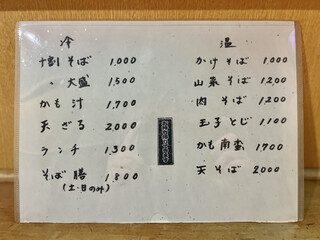 冷
十割そば 1,000
〃 大盛 1,500
かも汁 1,700
天ざる 2,000
ランチ 1,300
そば膳 1,800
(土・日のみ)
温
かけそば 1,000
山菜そば 1,200
肉そば 1,200
玉子とじ 1,100
かも南蛮 1,700
天そば 2,000